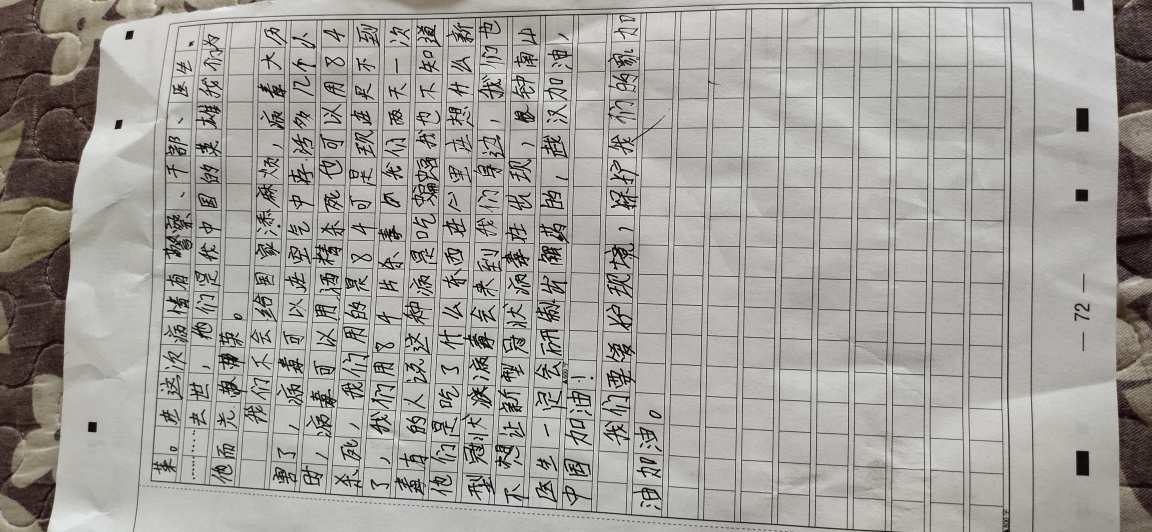 菜。在这次病情有警察、干部、医生、
……去世，他们是我中国的英雄我们为
他而光荣。
我们不会给国家添麻烦，病毒大历
害了，病毒可以在空气中存活多几个小
时，病毒可以用酒精杀死也可以用84
杀死，我们用的是84可是现在是不到
了，我们用84片杀毒 我们两天一次
毒有的人说这种病是吃蝙蝠我也不知道
他们是吃了什么东西在心里在想什么新
型冠状病毒会来到我们身边，我们也
不想让新型冠状病毒在出现，钟南山
医生一定会研制出解药的，武汉加油，
中国加油！
我们要爱护现境，保护我们的家加
油加油。
— 72 —